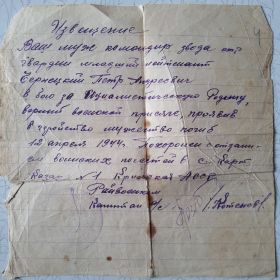 Извещение
Ваш муж командир звода
гвардии младший лейтенант
Чернецкий Петр Андреевич
В бою за социалистическую Родину,
верный воинской присяге, проявив
геройство мужество погиб
12 апреля 1944. Похоронен с отдани-
ем воинских почестей в с.
№1 Крымской АССР
Райвоенком
Капитан